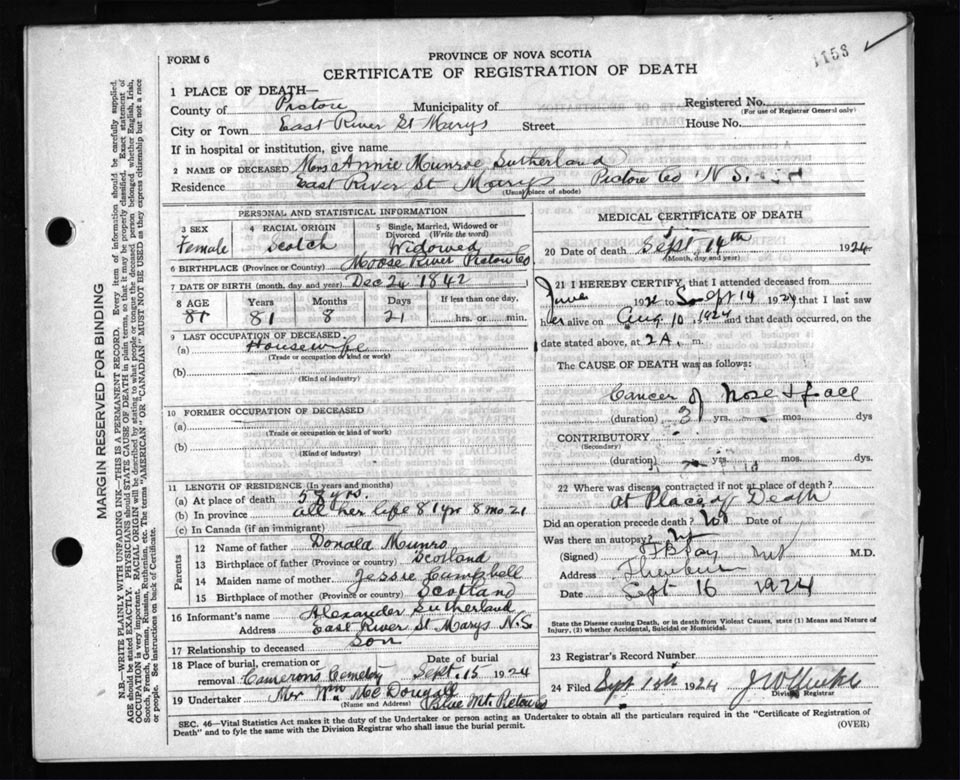 1153 ✓
FORM 6
PROVINCE OF NOVA SCOTIA
CERTIFICATE OF REGISTRATION OF DEATH
1 PLACE OF DEATH—
County of Pictou Municipality of Registered No. (For use of Registrar General only)
City or Town East River St Marys Street House No.
If in hospital or institution, give name
2 NAME OF DECEASED Mrs Annie Munroe Sutherland
Residence East River St Marys Pictou Co N S.
(Usual place of abode)
PERSONAL AND STATISTICAL INFORMATION
3 SEX Female
4 RACIAL ORIGIN Scotch
5 Single, Married, Widowed or Divorced (Write the word) Widowed
6 BIRTHPLACE (Province or Country) Moose River Pictou Co
7 DATE OF BIRTH (month, day and year) Dec 24 1842
8 AGE Years Months Days If less than one day.
81 81 8 21 hrs. or min.
9 LAST OCCUPATION OF DECEASED
(a) Housewife
(Trade or occupation or kind or work)
(b)
(Kind of industry)
10 FORMER OCCUPATION OF DECEASED
(a)
(Trade or occupation or kind of work)
(b)
(Kind of industry)
11 LENGTH OF RESIDENCE (In years and months)
(a) At place of death 58 yrs.
(b) In province all her life 81 yrs 8 mo. 21
(c) In Canada (if an immigrant)
Parents
12 Name of father Donald Munro
13 Birthplace of father (Province or country) Scotland
14 Maiden name of mother Jessie Campbell
15 Birthplace of mother (Province or country) Scotland
16 Informant's name Alexander Sutherland
Address East River St Marys N.S
17 Relationship to deceased Son
18 Place of burial, cremation or removal Camerons Cemetery Date of burial Sept. 15 1924
19 Undertaker Mr Wm McDougall Blue Mt. Pictou Co
(Name and Address)
MEDICAL CERTIFICATE OF DEATH
20 Date of death Sept 14th 1924
(Month, day and year)
21 I HEREBY CERTIFY, that I attended deceased from
June 192 Sept 14 1924 that I last saw
her alive on Aug 10, 1924 and that death occurred, on the
date stated above, at 2 A. m.
The CAUSE OF DEATH was as follows:
Cancer of Nose & face
(duration) 3 yrs. mos. dys
CONTRIBUTORY
(Secondary)
(duration) yrs. mos. dys
22 Where was disease contracted if not at place of death?
at Place of Death
Did an operation precede death? No Date of
Was there an autopsy?
(Signed) M.D.
Address
Date Sept 16 1924
State the Disease causing Death, or in death from Violent Causes, state (1) Means and Nature of Injury, (2) whether Accidental, Suicidal or Homicidal.
23 Registrar's Record Number
24 Filed Sept 1924
Division Registrar
SEC. 46—Vital Statistics Act makes it the duty of the Undertaker or person acting as Undertaker to obtain all the particulars required in the "Certificate of Registration of
Death" and to fyle the same with the Division Registrar who shall issue the burial permit. (OVER)
MARGIN RESERVED FOR BINDING
N.B.—WRITE PLAINLY WITH UNFADING INK—THIS IS A PERMANENT RECORD. Every item of information should be carefully supplied.
AGE should be stated EXACTLY. PHYSICIANS should STATE CAUSE OF DEATH in plain terms, so that it may be properly classified. Exact statement of
OCCUPATION is very important. RACIAL ORIGIN will be described by stating to what people or tongue the deceased person belonged whether English, Irish,
Scotch, French, German, Russian, Ruthenian, etc. The terms "AMERICAN" OR "CANADIAN" MUST NOT BE USED as they express citizenship but not a race
or people. See instructions on back of Certificate.